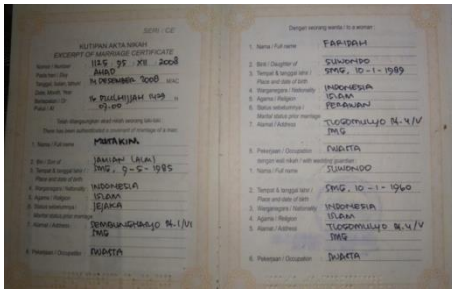 SERI : CE
KUTIPAN AKTA NIKAH
EXCERPT OF MARRIAGE CERTIFICATE
Nomor / Number 1125. 95. XII. 2008
Pada hari / Day AHAD
Tanggal, bulan, tahun 14 DESEMBER 2008 MAC
Date, Month, Year
Bertepatan / Or 16 DZULHIJJAH 1429
Pukul / At 09.00
Telah dilangsungkan akad nikah seorang laki-laki :
There has been authenticated a covenant of marriage of a man :
1. Nama / Full name MUTAKIM
2. Bin / Son of JAMIAN (ALM)
3. Tempat & tanggal lahir / SMG, 9-5-1985
Place and date of birth
4. Warganegara / Nationality INDONESIA
5. Agama / Religion ISLAM
6. Status sebelumnya / JEJAKA
Marital status prior marriage
7. Alamat / Address 4.1/VI
SMG
8. Pekerjaan / Occupation SWASTA
Dengan seorang wanita / to a woman :
1. Nama / Full name FARIDAH
2. Binti / Daughter of SUWONDO
3. Tempat & tanggal lahir / SMG, 10-1-1989
Place and date of birth
4. Warganegara / Nationality INDONESIA
5. Agama / Religion ISLAM
6. Status sebelumnya / PERAWAN
Marital status prior marriage
7. Alamat / Address TLOGOMULYO 4/V
SMG
8. Pekerjaan / Occupation SWASTA
dengan wali nikah / with wedding guardian :
1. Nama / Full name SUWONDO
2. Tempat & tanggal lahir / SMG, 10-1-1960
Place and date of birth
3. Warganegara / Nationality INDONESIA
4. Agama / Religion ISLAM
5. Alamat / Address TLOGOMULYO 4/V
SMG
6. Pekerjaan / Occupation SWASTA